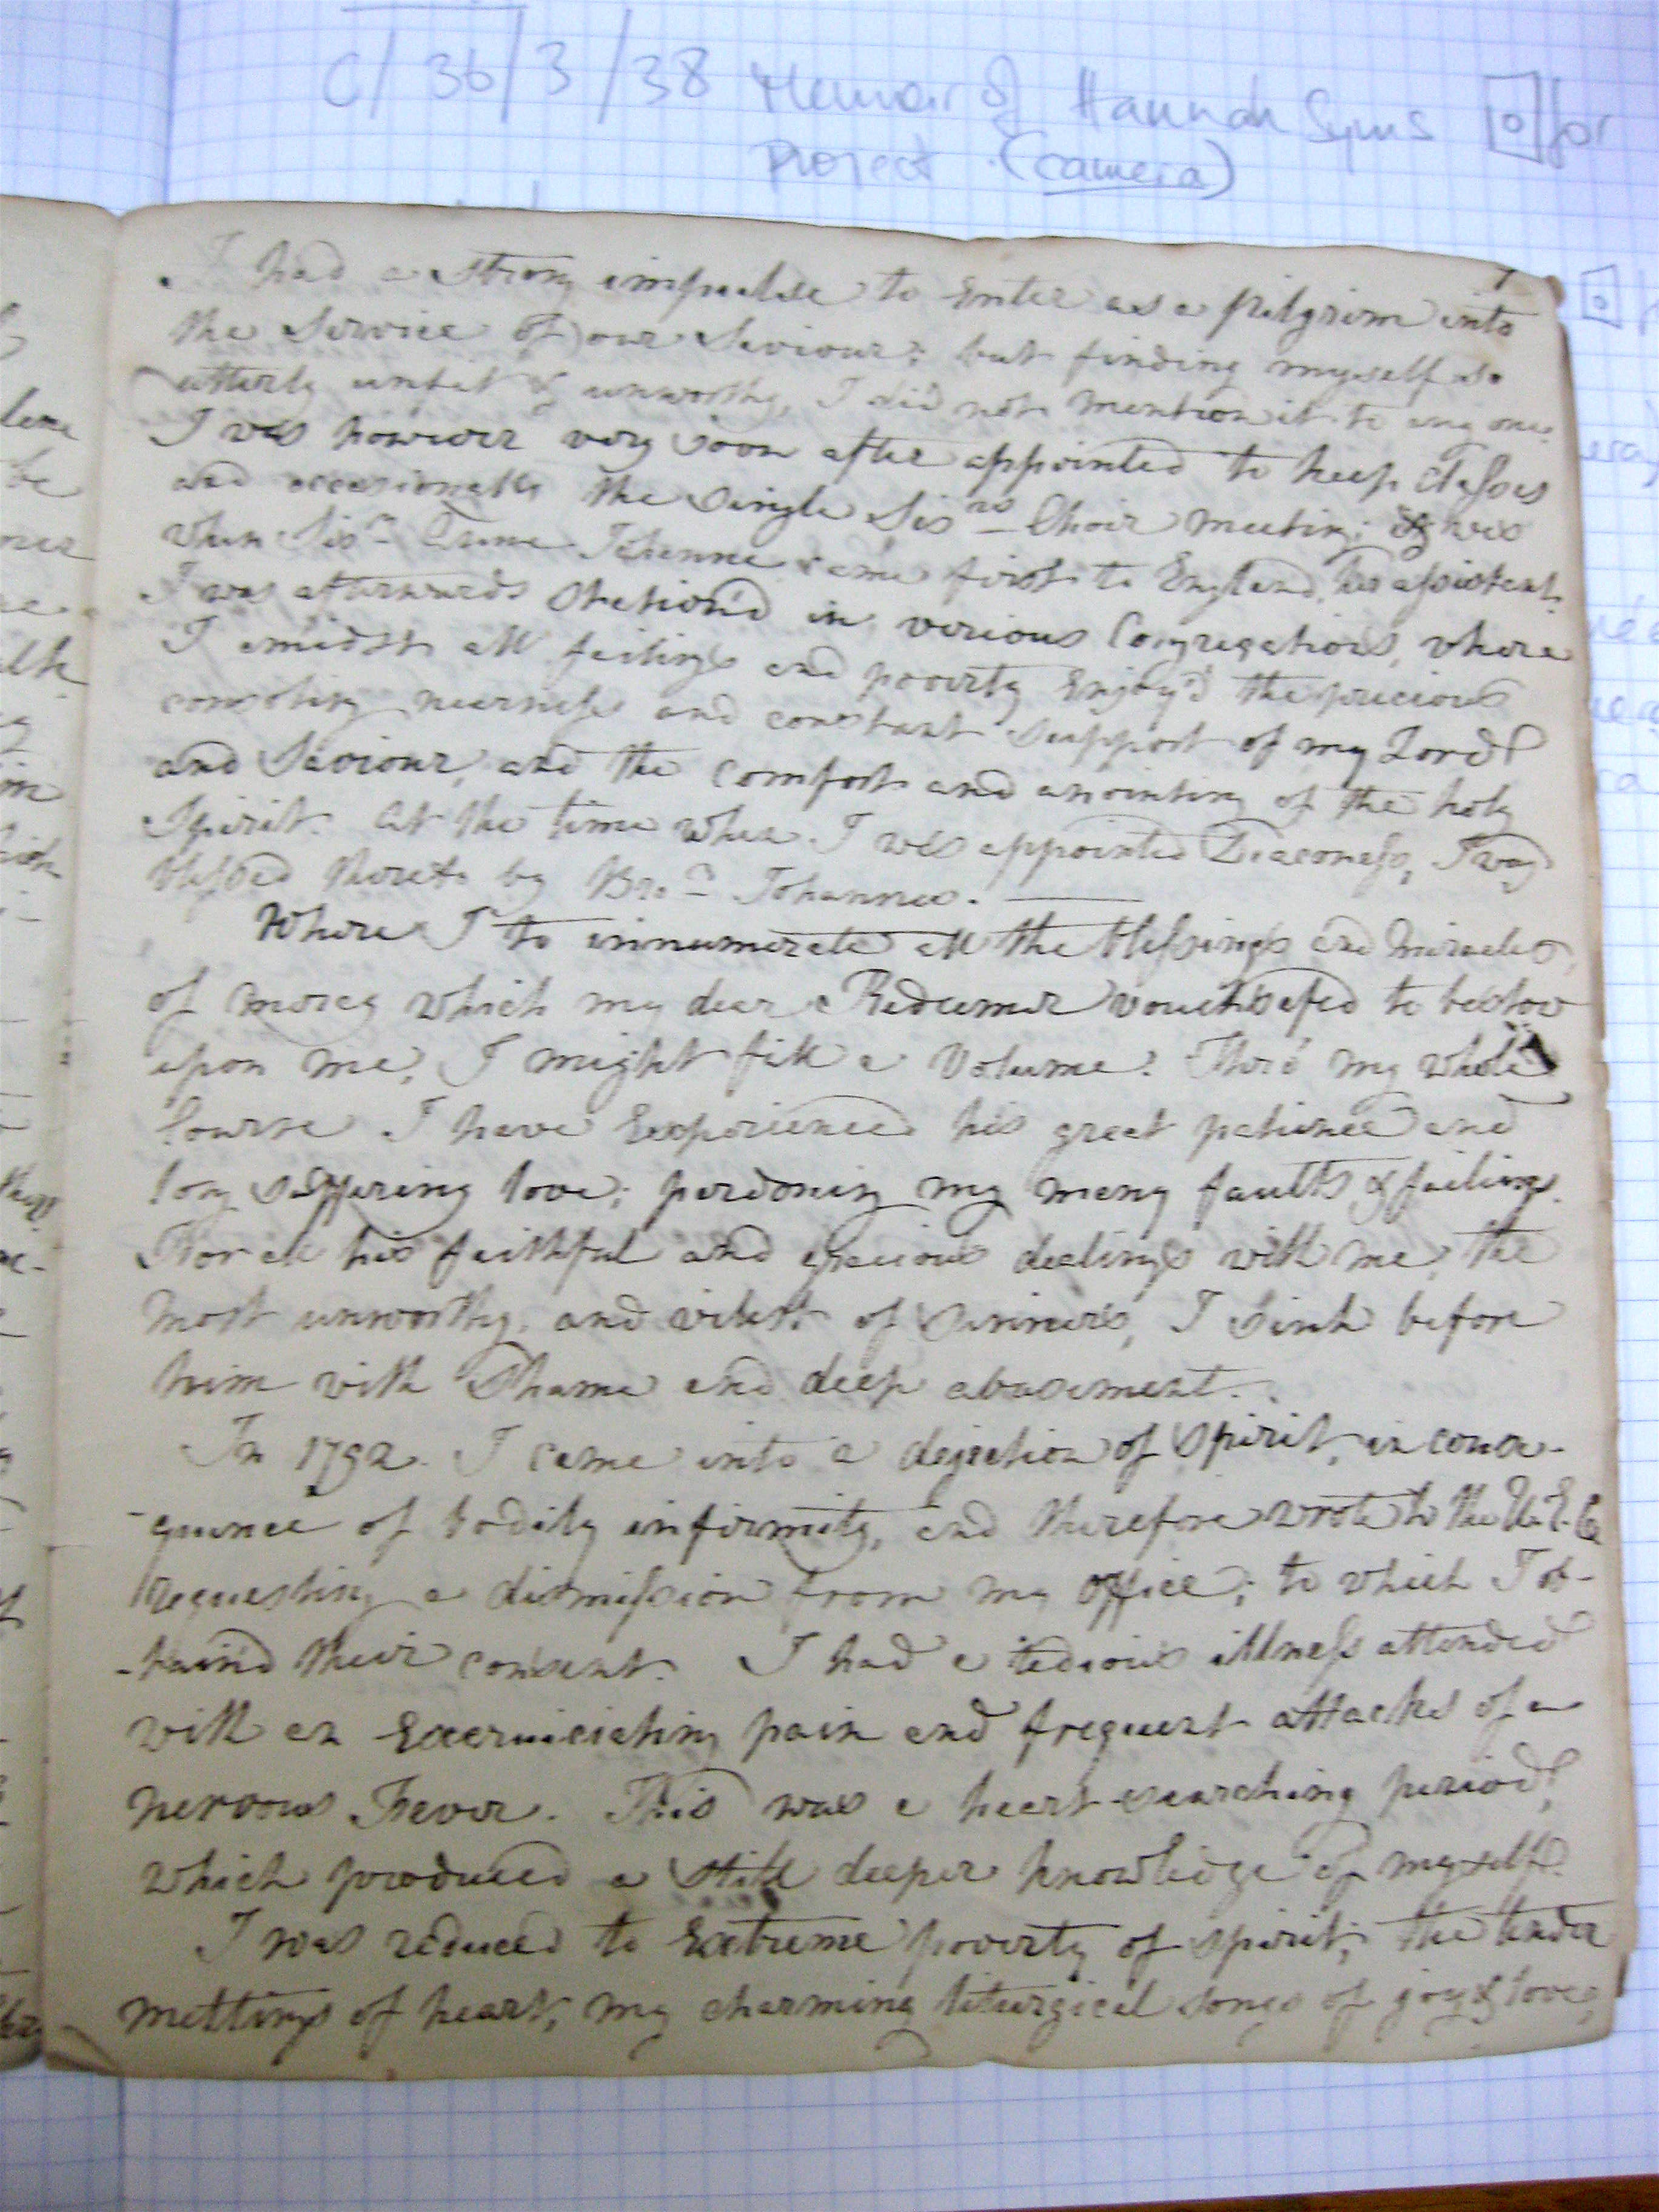 C/36/3/38 Memoir of Hannah Syms for
Project (camera)
7
I had a strong impulse to Enter as a pilgrim into
the Service of our Saviour; but finding myself so
utterly unfit & unworthy, I did not mention it to any one.
I was however very soon after appointed to keep Classes
and occasionally the Single Sisrs Choir meeting; & was
when Sisr Anna Johanna came first to England, her assistent.
I was afterwards Station'd in various Congregations, where
I amidst all failings and poverty Enjoy'd the precious
consoling nearness and constant support of my Lord
and Saviour, and the comfort and anointing of the holy
Spirit. At the time when I was appointed Deaconess, I was
blessed thereto by Bror Johannes.
Where I to innumerate all the blessings and miracles
of mercy which my dear Redeemer vouchsafed to bestow
upon me, I might fill a Volume. Thro' my whole
Course I have Experienced his great patience and
long suffering love; pardoning my many faults & failings.
For all his faithful and gracious dealings with me, the
most unworthy, and vilest of Sinners, I sink before
him with Shame and deep abasement.
In 1792. I came into a dejection of Spirit, in conse-
-quence of bodily infirmity, and therefore wrote to the U.E.C
requesting a dismission from my office; to which I ob-
-tain'd their consent. I had a tedious illness attended
with an Excruiciating pain and frequent attacks of a
nervous Fever. This was a heart searching period,
which produced a still deeper knowledge of myself.
I was reduced to Extreme poverty of spirit; the tender
meltings of heart, my charming liturgical songs of joy & love,